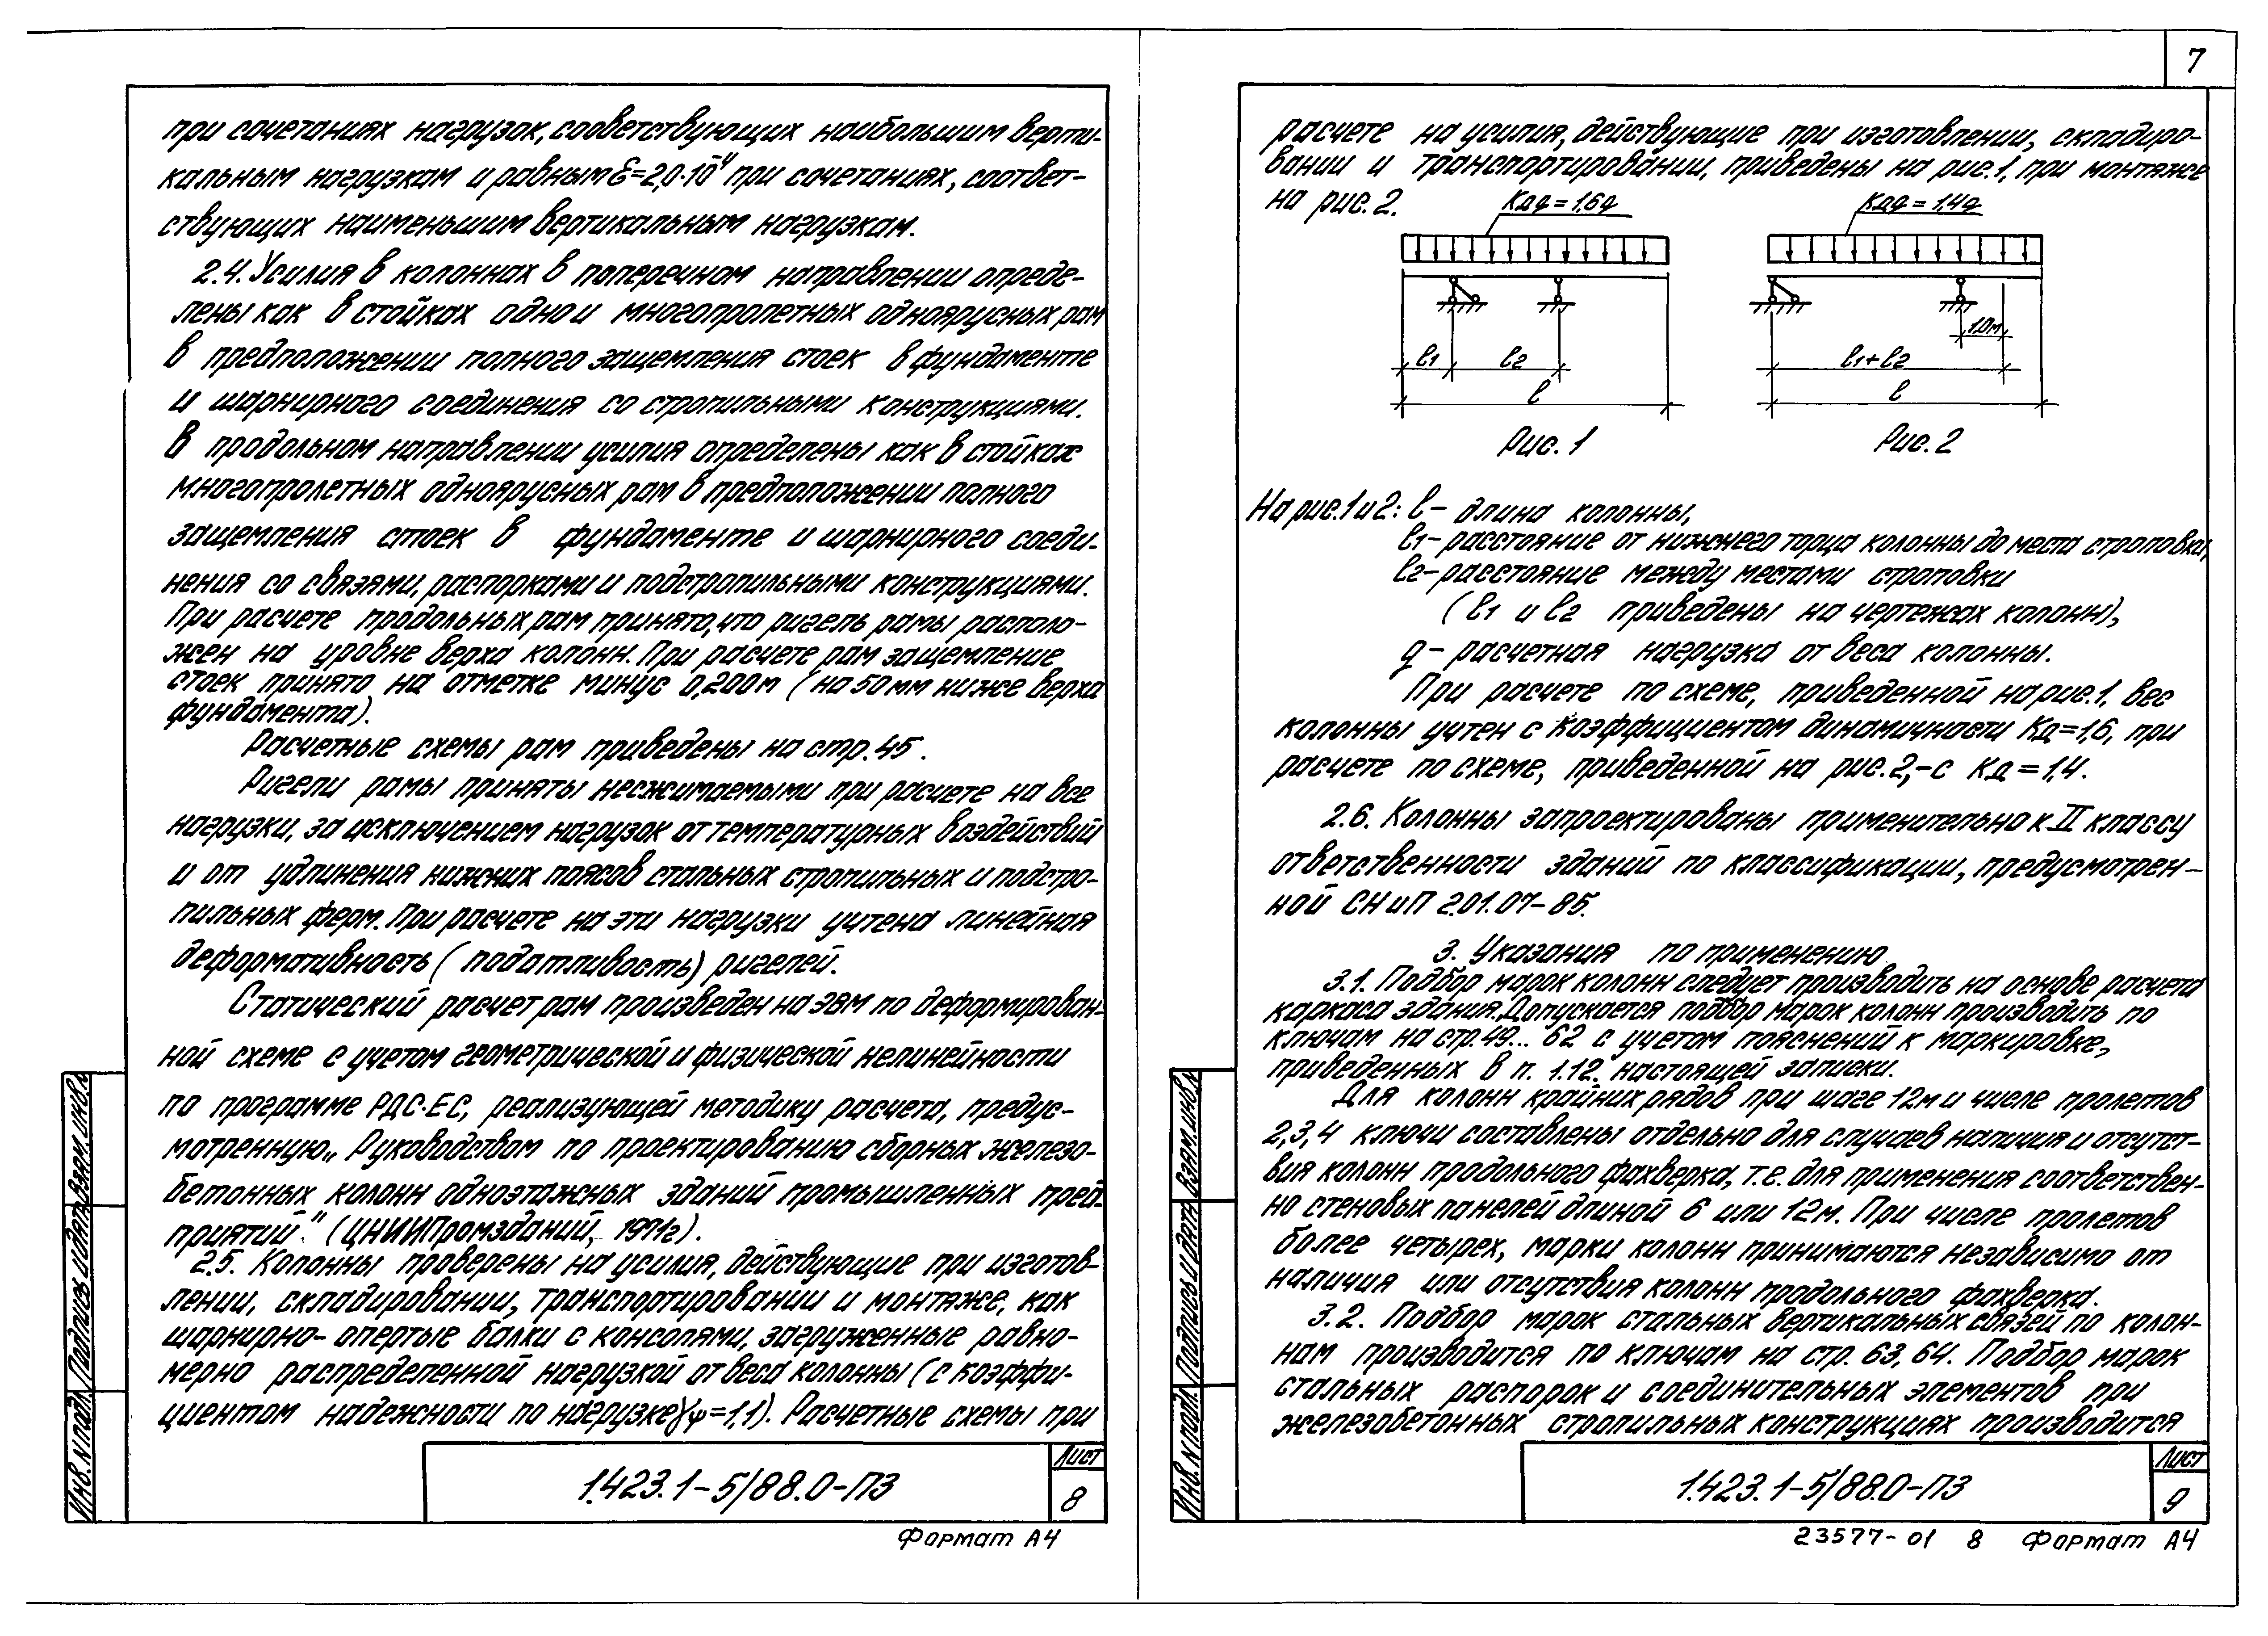 при сочетаниях нагрузок, сооветствующих наибольшим верти-
кальным нагрузкам и равным ε=2,0·10⁻⁴ при сочетаниях, соответ-
ствующих наименьшим вертикальным нагрузкам.
2.4. Усилия в колоннах в поперечном направлении опреде-
лены как в стойках одно и многопролетных одноярусных рам
в предположении полного защемления стоек в фундаменте
и шарнирного соединения со стропильными конструкциями.
В продольном направлении усилия определены как в стойках
многопролетных одноярусных рам в предположении полного
защемления стоек в фундаменте и шарнирного соеди-
нения со связями, распорками и подстропильными конструкциями.
При расчете продольных рам принято, что ригель рамы располо-
жен на уровне верха колонн. При расчете рам защемление
стоек принято на отметке минус 0,200м (на 50мм ниже верха
фундамента).
Расчетные схемы рам приведены на стр. 45.
Ригели рамы приняты несжимаемыми при расчете на все
нагрузки, за исключением нагрузок от температурных воздействий
и от удлинения нижних поясов стальных стропильных и подстро-
пильных ферм. При расчете на эти нагрузки учтена линейная
деформативность (податливость) ригелей.
Статический расчет рам произведен на ЭВМ по деформирован-
ной схеме с учетом геометрической и физической нелинейности
по программе РДС·ЕС, реализующей методику расчета, предус-
мотренную „Руководством по проектированию сборных железо-
бетонных колонн одноэтажных зданий промышленных пред-
приятий." (ЦНИИПромзданий, 1971г).
2.5. Колонны проверены на усилия, действующие при изготов-
лении, складировании, транспортировании и монтаже, как
шарнирно-опертые балки с консолями, загруженные равно-
мерно распределенной нагрузкой от веса колонны (с коэффи-
циентом надежности по нагрузке γφ=1,1). Расчетные схемы при
1.423.1-5/88.0-ПЗ
Лист
8
Формат А4
Инв. № подл.
Подпись и дата
Взам. инв. №
7
расчете на усилия, действующие при изготовлении, складиро-
вании и транспортировании, приведены на рис. 1, при монтаже
на рис. 2.
Кдq = 1,6q
Кдq = 1,4q
1,0м
ℓ1
ℓ2
ℓ1+ℓ2
ℓ
ℓ
Рис. 1
Рис. 2
На рис. 1 и 2: ℓ - длина колонны,
ℓ1 - расстояние от нижнего торца колонны до места строповки,
ℓ2 - расстояние между местами строповки
(ℓ1 и ℓ2 приведены на чертежах колонн),
q - расчетная нагрузка от веса колонны.
При расчете по схеме, приведенной на рис. 1, вес
колонны учтен с коэффициентом динамичности Кд=1,6, при
расчете по схеме, приведенной на рис. 2, - с Кд = 1,4.
2.6. Колонны запроектированы применительно к II классу
ответственности зданий по классификации, предусмотрен-
ной СНиП 2.01.07-85.
3. Указания по применению
3.1. Подбор марок колонн следует производить на основе расчета
каркаса здания. Допускается подбор марок колонн производить по
ключам на стр. 49... 62 с учетом пояснений к маркировке,
приведенных в п. 1.12. настоящей записки.
Для колонн крайних рядов при шаге 12м и числе пролетов
2,3,4 ключи составлены отдельно для случаев наличия и отсутст-
вия колонн продольного фахверка, т.е. для применения соответствен-
но стеновых панелей длиной 6 или 12м. При числе пролетов
более четырех, марки колонн принимаются независимо от
наличия или отсутствия колонн продольного фахверка.
3.2. Подбор марок стальных вертикальных связей по колон-
нам производится по ключам на стр. 63, 64. Подбор марок
стальных распорок и соединительных элементов при
железобетонных стропильных конструкциях производится
1.423.1-5/88.0-ПЗ
Лист
9
23577-01 8 Формат А4
Инв. № подл.
Подпись и дата
Взам. инв. №